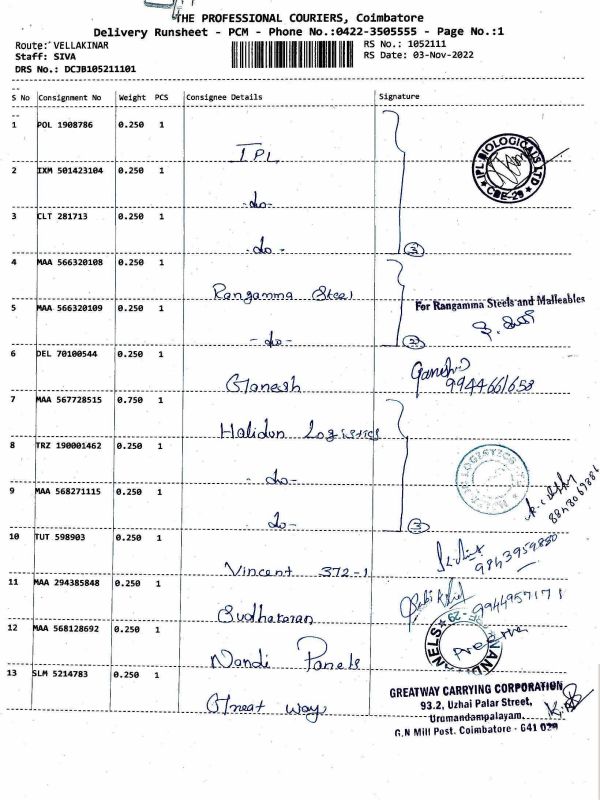 THE PROFESSIONAL COURIERS, Coimbatore
Delivery Runsheet - PCM - Phone No.:0422-3505555 - Page No.:1
Route: VELLAKINAR RS No.: 1052111
Staff: SIVA RS Date: 03-Nov-2022
DRS No.: DCJB105211101
S No Consignment No Weight PCS Consignee Details Signature
1 POL 1908786 0.250 1
IPL
IPL BIOLOGICALS LTD CBE-29
2 IXM 501423104 0.250 1
-do-
3 CLT 281713 0.250 1
-do- 3
4 MAA 566320108 0.250 1
Rangamma Steel
For Rangamma Steels and Malleables
5 MAA 566320109 0.250 1
-do- 2
6 DEL 70100544 0.250 1
Ganesh
Ganesh
9944661658
7 MAA 567728515 0.750 1
Halidon Logistics
8 TRZ 190001462 0.250 1
-do-
9 MAA 568271115 0.250 1
-do- 3
10 TUT 598903 0.250 1
Vincent 372-1
9843959880
11 MAA 294385848 0.250 1
Sudhakaran
9944957171
12 MAA 568128692 0.250 1
Nandi Panels
NANDI PANELS
13 SLM 5214783 0.250 1
Great Way
GREATWAY CARRYING CORPORATION
93.2, Uzhai Palar Street,
Urumandampalayam,
G.N Mill Post. Coimbatore - 641 029